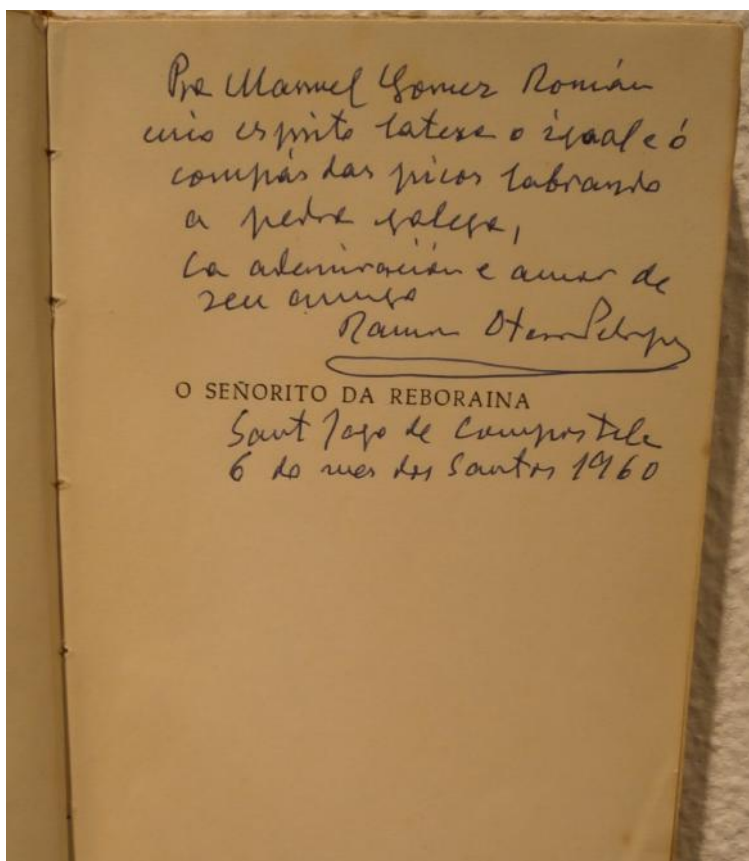 Pra Manuel Gomez Román
cuio esprito latexa o igoal e ó
compás dos picos labrando
a pedra galega,
co admiración e amor de
seu amigo
Ramon Otero Pedrayo
O SEÑORITO DA REBORAINA
Sant Iago de Compostela
6 do mes dos Santos 1960